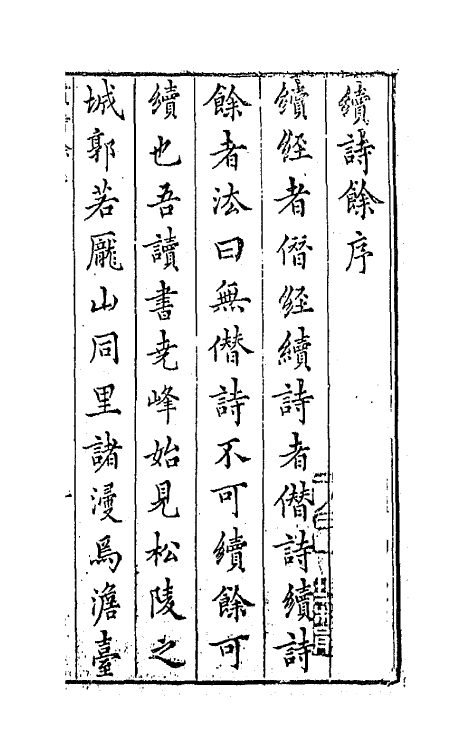 續詩餘序
續經者僭經續詩者僭詩續詩
餘者法曰無僭詩不可續餘可
續也吾讀書堯峰始見松陵之
城郭若龐山同里諸漫爲澹臺